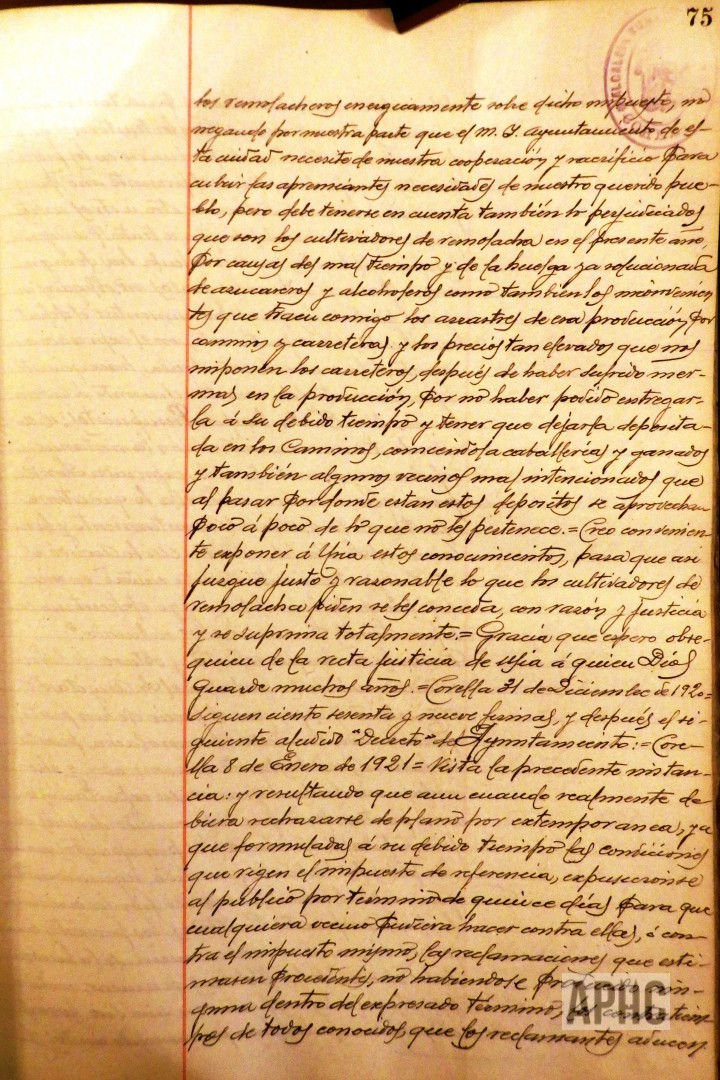 75
los remolacheros energicamente sobre dicho impuesto, no
negando por nuestra parte que el M. I. ayuntamiento de es-
ta ciudad necesite de nuestra cooperación y sacrificio para
cubrir las apremiantes necesidades de nuestro querido pue-
blo, pero debe tenerse en cuenta también lo perjudicados
que son los cultivadores de remolacha en el presente año,
por causas del mal tiempo y de la huelga ya solucionada
de azucareros y alcoholeros como también los inconvenien
tes que traen comigo los arrastres de esa producción, por
caminos y carreteras y los precios tan elevados que nos
imponen los carreteros, después de haber sufrido mer-
mas en la producción, por no haber podido entregar-
la á su debido tiempo y tener que dejarla deposita-
da en los Caminos, comiendola caballerias y ganados
y también algunos vecinos mal intencionados que
al pasar por donde estan estos depositos se aprovechan
poco á poco de lo que no les pertenece.= Creo convenien-
te exponer á Usia estos conocimientos, para que asi
juzgue justo y razonable lo que los cultivadores de
remolacha piden se les conceda, con razón y justicia
y se suprima totalmente.= Gracia que espero obse-
quien de la recta justicia de Usia á quien Dios
guarde muchos años.= Corella 31 de Diciembre de 1920=
Siguen ciento sesenta y nueve firmas, y después el si-
guiente aludido "Decreto" de Ayuntamiento:= Core-
lla 8 de Enero de 1921= Vista la precedente instan-
cia: y resultando que aun cuando realmente de
biera rechazarse de plano por extemporanea, ya
que formuladas á su debido tiempo las condiciones
que rigen el impuesto de referencia, expusieronse
al público por término de quince días para que
cualquiera vecino pudiera hacer contra ellas, ó con-
tra el impuesto mismo, las reclamaciones que esti-
masen procedentes, no habiéndose nin-
guna dentro del expresado término,
de todos conocidos, que los reclamantes aducen
APHC